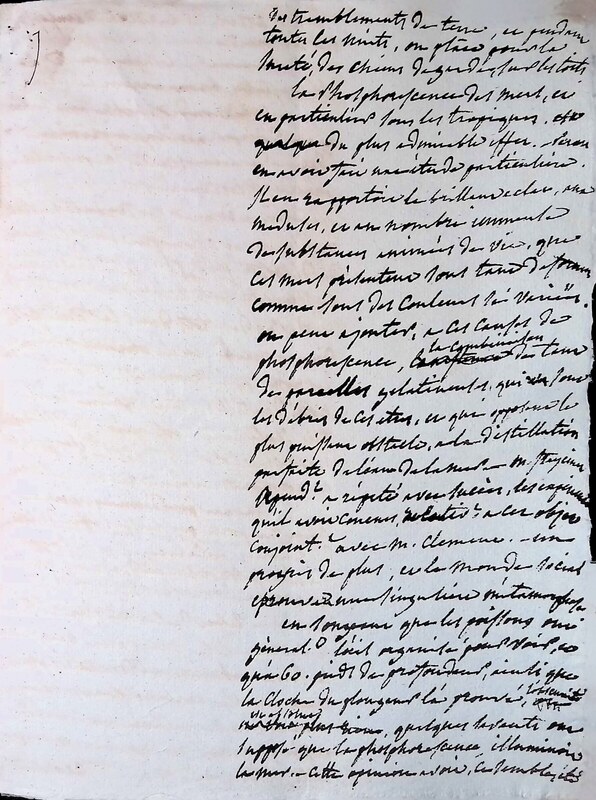 des tremblements de terre, et pendant
toutes les nuits, on place pour la
sureté, des chiens de garde sur les toits
la Phosphorescence des mers, et
en particulier sous les tropiques, est
du plus admirable effet.
en avoir fait une étude particulière.
Il en rapportoit le brillant éclat, aux
meduses, et au nombre immense
de substances animées de vie, que
ces mers présentent sous tant de formes
comme sous des couleurs si variées.
on peut ajouter, à ces causes de
phosphorescence, la combinaison de tant
de parcelles gelatineuses, qui sont
les débris de ces etres, et qui opposent le
plus puissant obstacle, à la distillation
parfaite de l'eau de la mer. — M.
a répété avec succès, les expériences
qu'il avoit concues, relativ.t à cet objet
conjoint.t avec M. Clement. — un
progrès de plus, et le monde social
éprouve une singulière métamorphose
en songeant que les poissons ont
général.t l'œil organisé pour voir, et
qu'à 60. pieds de profondeur, ainsi que
la cloche du plongeur l'a prouvé, l'obscurité
quelques savants ont
supposé que la phosphorescence, illuminoit
la mer. — cette opinion avoit, ce semble, été